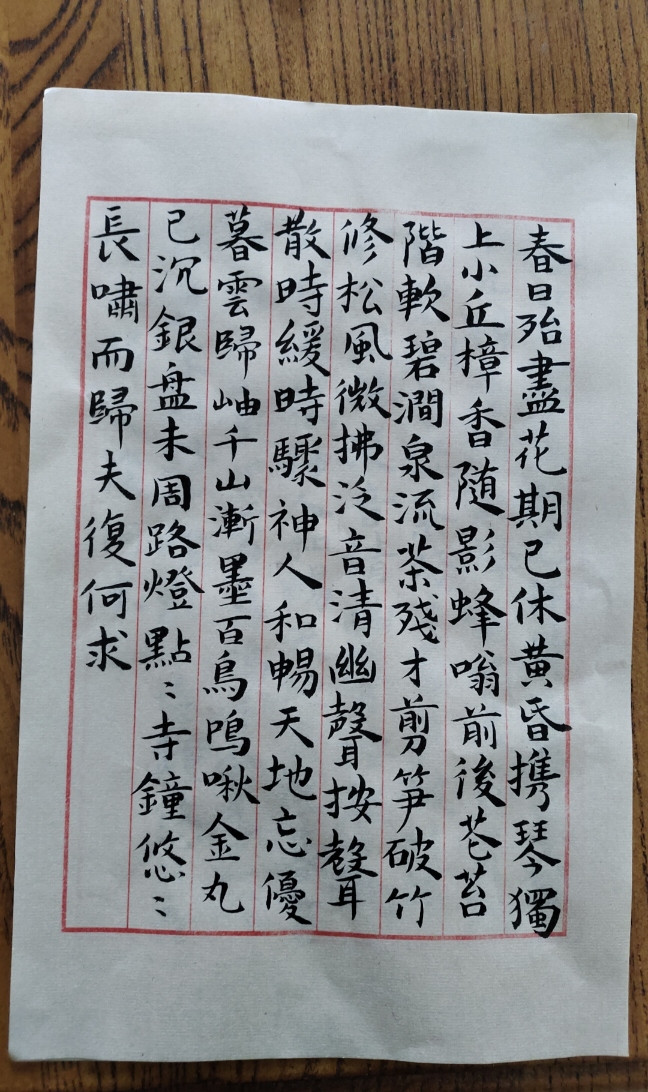 春日殆盡花期已休黃昏携琴獨
上小丘樟香随影蜂嗡前後苍苔
階軟碧澗泉流茶殘才剪笋破竹
修松風微拂泛音清幽聲按聲
散時緩時驟神人和暢天地忘優
暮雲歸岫千山漸墨百鳥鳴啾金丸
已沉銀盘未周路燈點〻寺鐘悠〻
長嘯而歸夫復何求